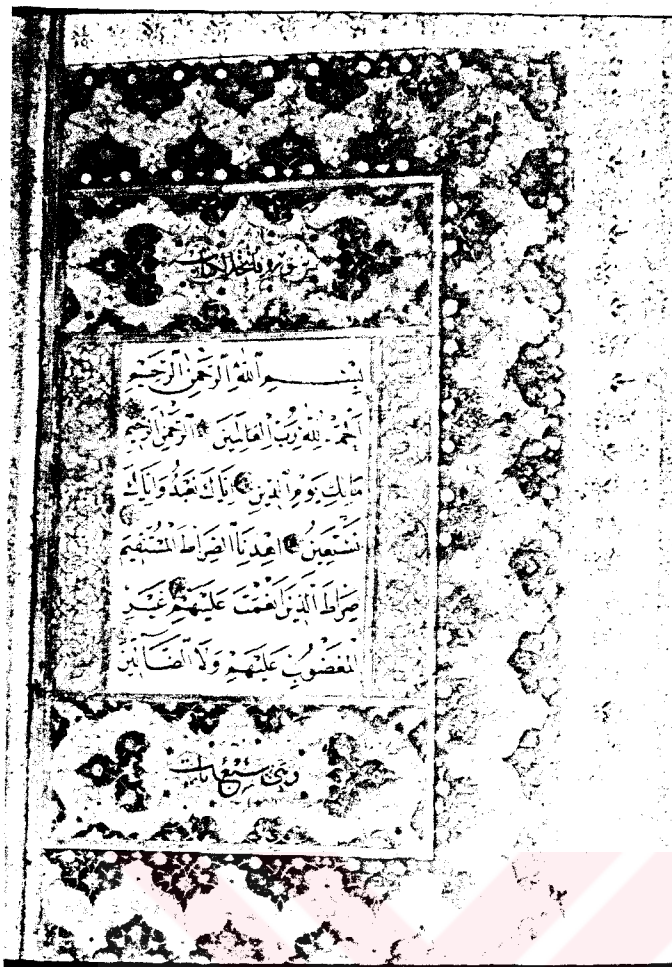 سورة فاتحة الكتاب
بِسْمِ ٱللَّهِ ٱلرَّحْمٰنِ ٱلرَّحِيمِ
اَلْحَمْدُ لِلَّهِ رَبِّ الْعَالَمِينَ الرَّحْمٰنِ الرَّحِيمِ
مَالِكِ يَوْمِ الدِّينِ اِيَّاكَ نَعْبُدُ وَاِيَّاكَ
نَسْتَعِينُ اِهْدِنَا الصِّرَاطَ الْمُسْتَقِيمَ
صِرَاطَ الَّذِينَ اَنْعَمْتَ عَلَيْهِمْ غَيْرِ
الْمَغْضُوبِ عَلَيْهِمْ وَلَا الضَّالِّينَ
وهي سبع آيات